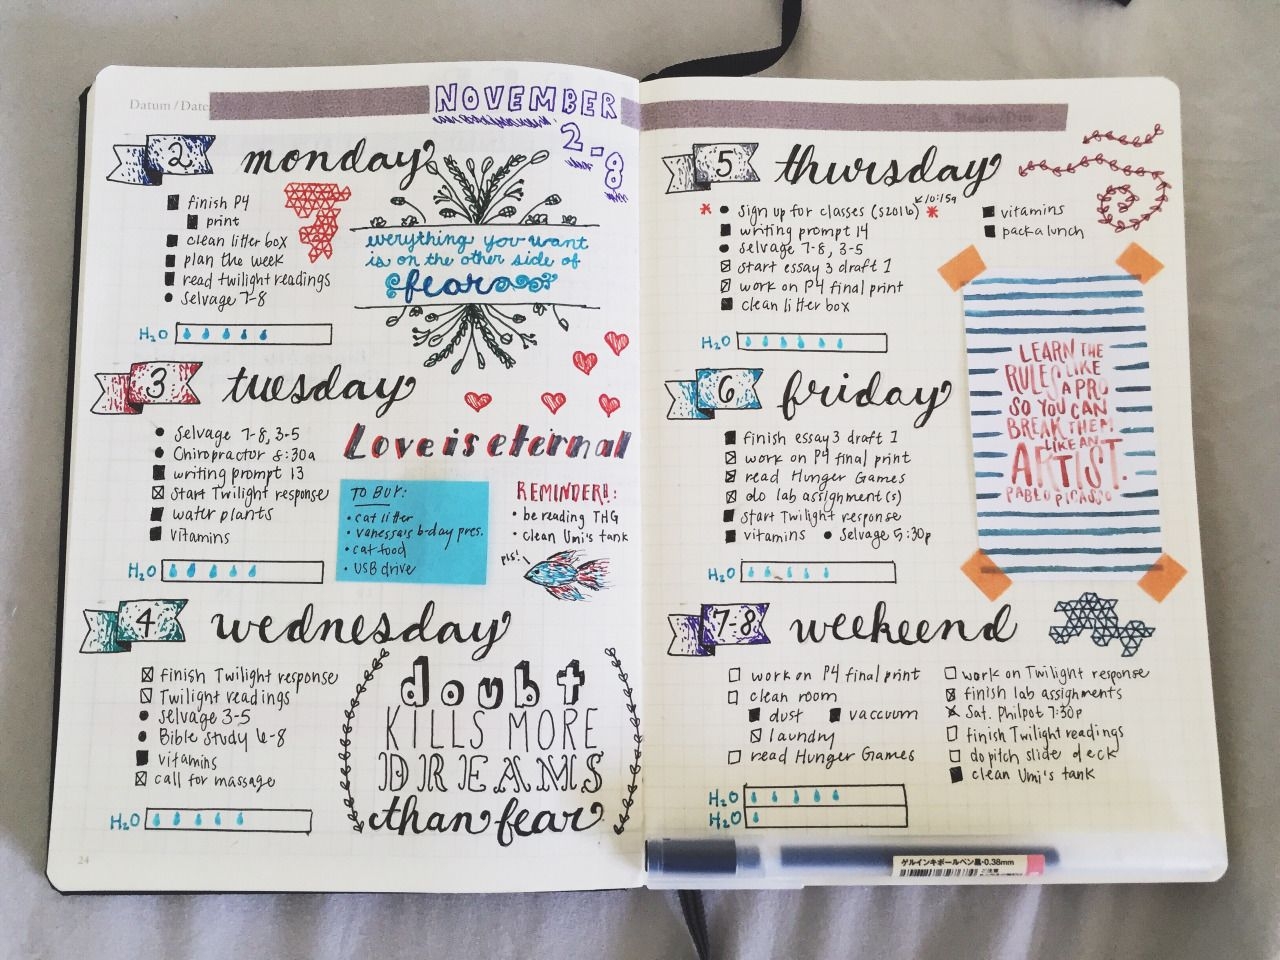 Datum / Date:
NOVEMBER
2-8
2 monday
finish P4
print
clean litter box
plan the week
read twilight readings
Selvage 7-8
H2O
everything you want
is on the other side of
fear
3 tuesday
Selvage 7-8, 3-5
Chiropractor 8:30a
writing prompt 13
start Twilight response
water plants
vitamins
H2O
Love is eternal
TO BUY:
• cat litter
• vanessa's b-day pres.
• cat food
• USB drive
REMINDER!!:
• be reading THG
• clean Umi's tank
pls!
4 wednesday
finish Twilight response
Twilight readings
Selvage 3-5
Bible Study 6-8
vitamins
call for massage
H2O
doubt
KILLS MORE
DREAMS
than fear
24
5 thursday
* Sign up for classes (S2016) * 10:15a
writing prompt 14
Selvage 7-8, 3-5
start essay 3 draft 1
work on P4 final print
clean litter box
vitamins
pack a lunch
H2O
6 friday
finish essay 3 draft 1
work on P4 final print
read Hunger Games
do lab assignment(s)
start Twilight response
vitamins • Selvage 5:30p
H2O
LEARN THE
RULES LIKE
A PRO
SO YOU CAN
BREAK THEM
LIKE AN
ARTIST.
PABLO PICASSO
7-8 weekend
work on P4 final print
clean room
dust vaccuum
laundry
read Hunger Games
work on Twilight response
finish lab assignments
Sat. Philpot 7:30p
finish Twilight readings
do pitch slide deck
clean Umi's tank
H2O
H2O
ゲルインキボールペン黒・0.38mm